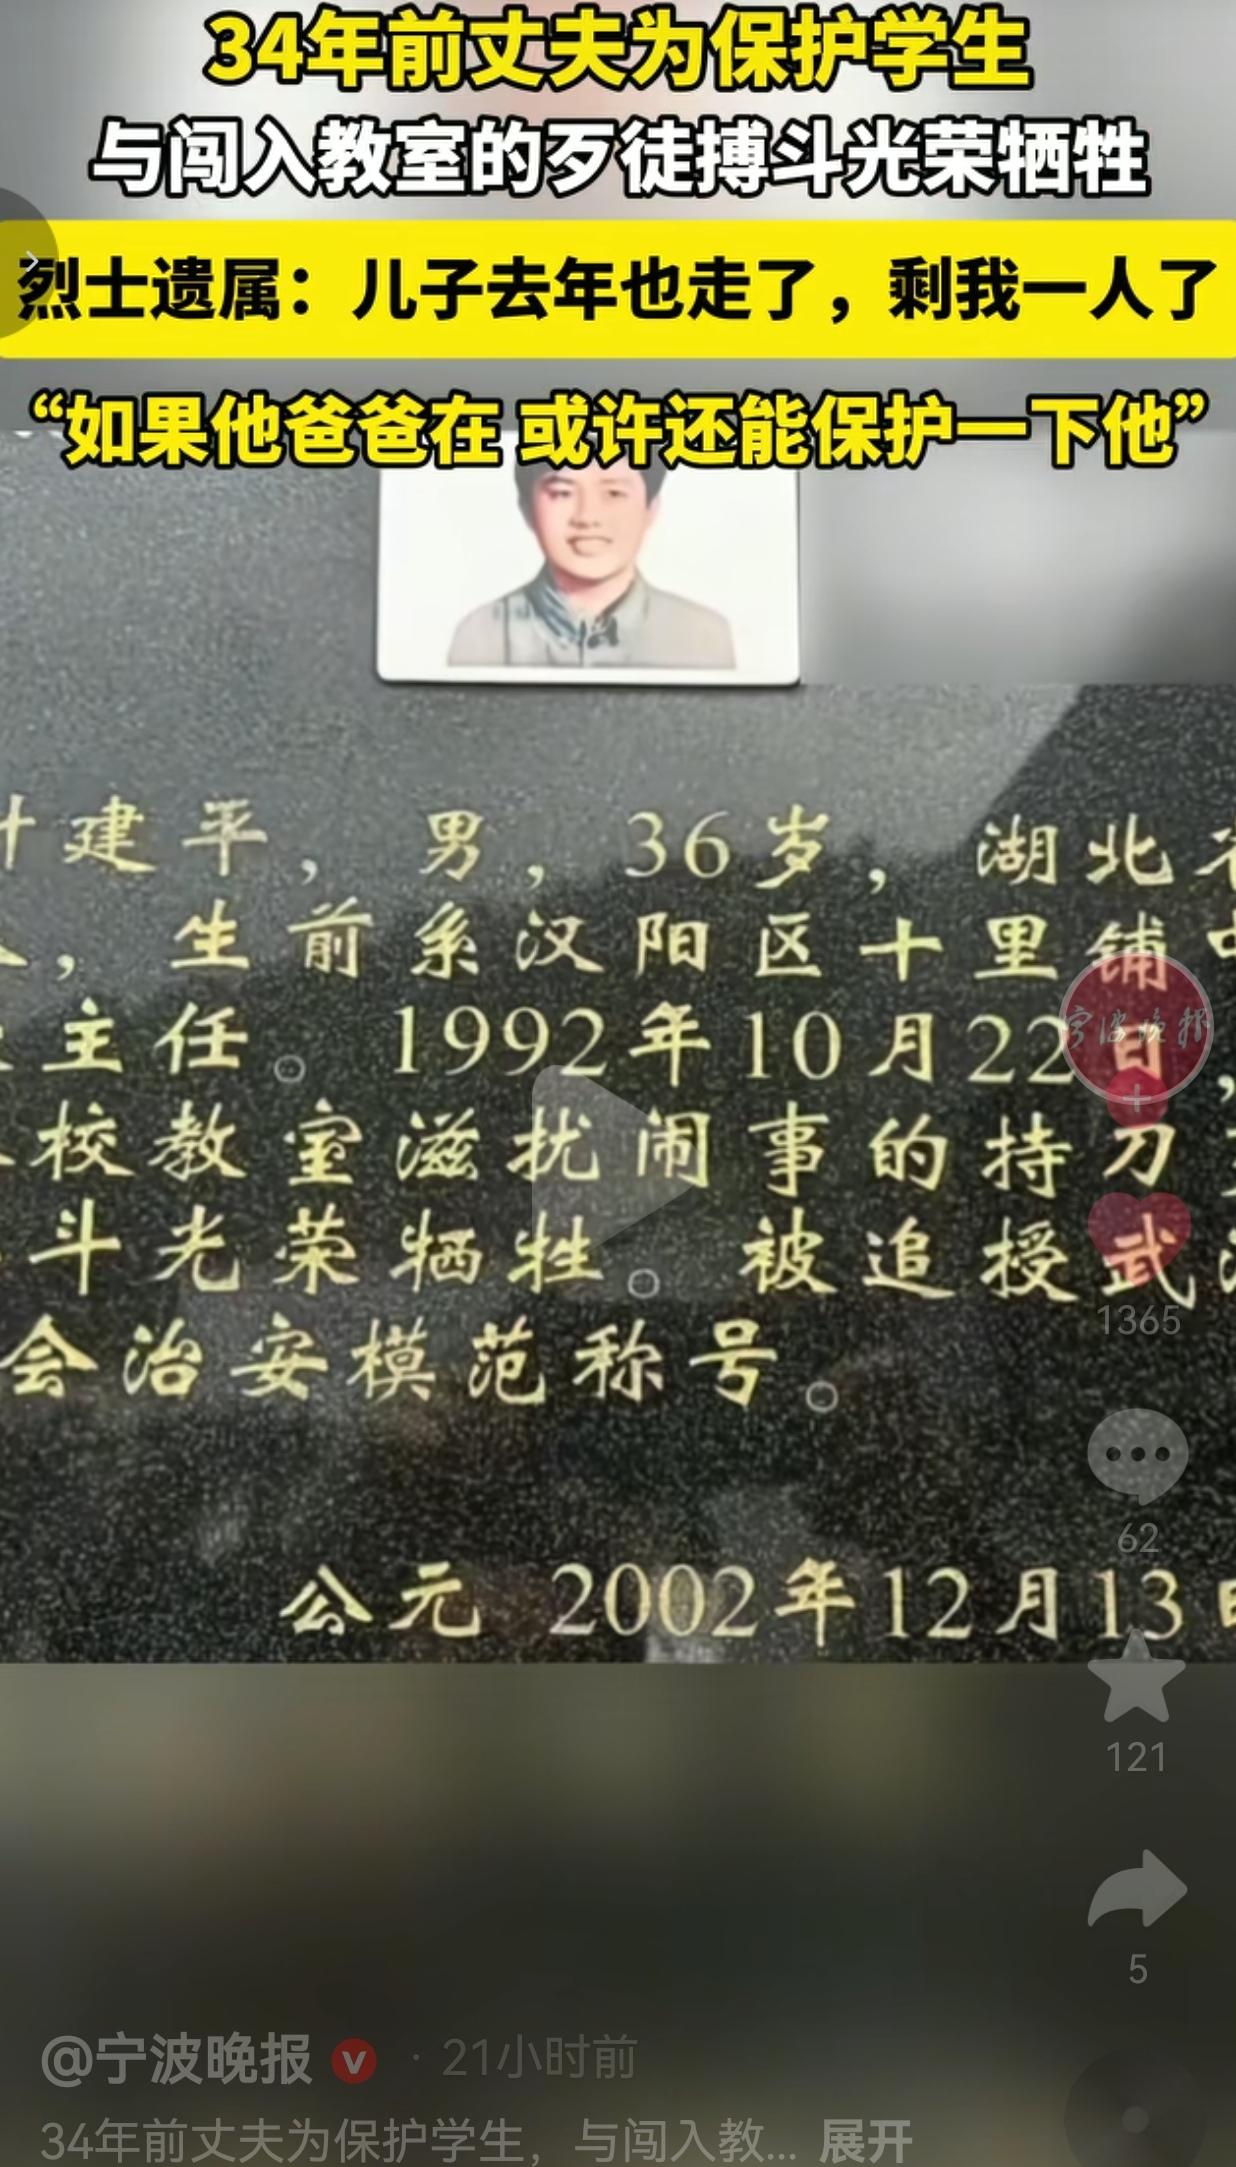 34年前丈夫为保护学生
与闯入教室的歹徒搏斗光荣牺牲
烈士遗属：儿子去年也走了，剩我一人了
“如果他爸爸在 或许还能保护一下他”
建平，男，36岁，湖北
，生前系汉阳区十里铺
主任。1992年10月22日，
校教室滋扰闹事的持刀
斗光荣牺牲。被追授武
会治安模范称号。
公元 2002年12月13日
宁波晚报
1365
62
121
5
@宁波晚报 · 21小时前
34年前丈夫为保护学生，与闯入教... 展开